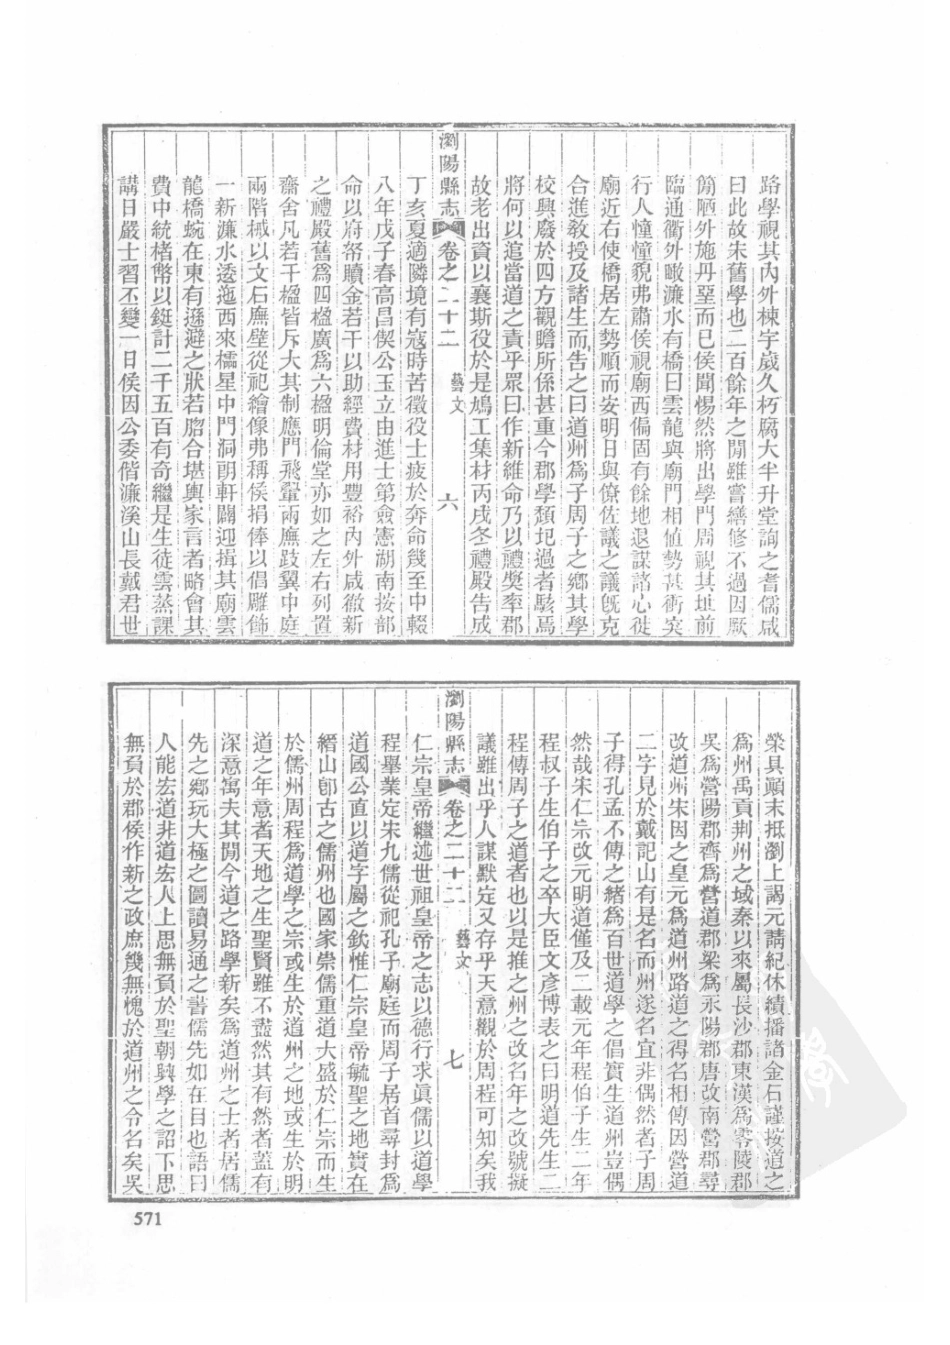 路學視其內外棟宇歲久朽腐大半升堂詢之耆儒咸
曰此故朱舊學也二百餘年之閒雖嘗繕修不過因厥
簡陋外施丹堊而已侯聞惕然將出學門周視其址前
臨通衢外瞰濂水有橋曰雲龍與廟門相値勢甚衝突
行人憧憧貌弗肅侯視廟西偏固有餘地退謀諸心徙
廟近右使橋居左勢順而安明日與僚佐議之議旣克
合進敎授及諸生而告之曰道州爲子周子之鄕其學
校興廢於四方觀瞻所係甚重今郡學頹圮過者駭焉
將何以追當道之責乎眾曰作新維命乃以禮奬率郡
故老出資以襄斯役於是鳩工集材丙戌冬禮殿告成
瀏陽縣志 卷之二十二 藝文 六
丁亥夏適隣境有寇時苦徵役士疲於奔命幾至中輟
八年戊子春高昌偰公玉立由進士第僉憲湖南按部
命以府帑贖金若干以助經費材用豐裕內外咸徹新
之禮殿舊爲四楹廣爲六楹明倫堂亦如之左右列置
齋舍凡若干楹皆斥大其制應門飛翬兩廡跂翼中庭
兩階椷以文石廡壁從祀繪像弗稱侯捐俸以倡雕飾
一新濂水逶迤西來櫺星中門洞朗軒闢迎揖其廟雲
龍橋蜿在東有遜避之狀若脗合堪輿家言者略會其
費中統楮幣以鋌計二千五百有奇繼是生徒雲蒸課
講日嚴士習丕變一日侯因公委偕濂溪山長戴君世
榮具顚末抵瀏上謁元請紀休績播諸金石謹按道之
爲州禹貢荆州之域秦以來屬長沙郡東漢爲零陵郡
吳爲營陽郡齊爲營道郡梁爲永陽郡唐改南營郡尋
改道州宋因之皇元爲道州路道之得名相傳因營道
二字見於戴記山有是名而州遂名宜非偶然者子周
子得孔孟不傳之緖爲百世道學之倡實生道州豈偶
然哉宋仁宗改元明道僅及二載元年程伯子生二年
程叔子生伯子之卒大臣文彥博表之曰明道先生二
程傳周子之道者也以是推之州之改名年之改號擬
議雖出乎人謀默定又存乎天意觀於周程可知矣我
瀏陽縣志 卷之二十二 藝文 七
仁宗皇帝繼述世祖皇帝之志以德行求眞儒以道學
程舉業定宋九儒從祀孔子廟庭而周子居首尋封爲
道國公直以道字屬之欽惟仁宗皇帝毓聖之地實在
縉山卽古之儒州也國家崇儒重道大盛於仁宗而生
於儒州周程爲道學之宗或生於道州之地或生於明
道之年意者天地之生聖賢雖不盡然其有然者蓋有
深意寓夫其閒今道之路學新矣爲道州之士者居儒
先之鄕玩大極之圖讀易通之書儒先如在目也語曰
人能宏道非道宏人上思無負於聖朝興學之詔下思
無負於郡侯作新之政庶幾無愧於道州之令名矣吳
571